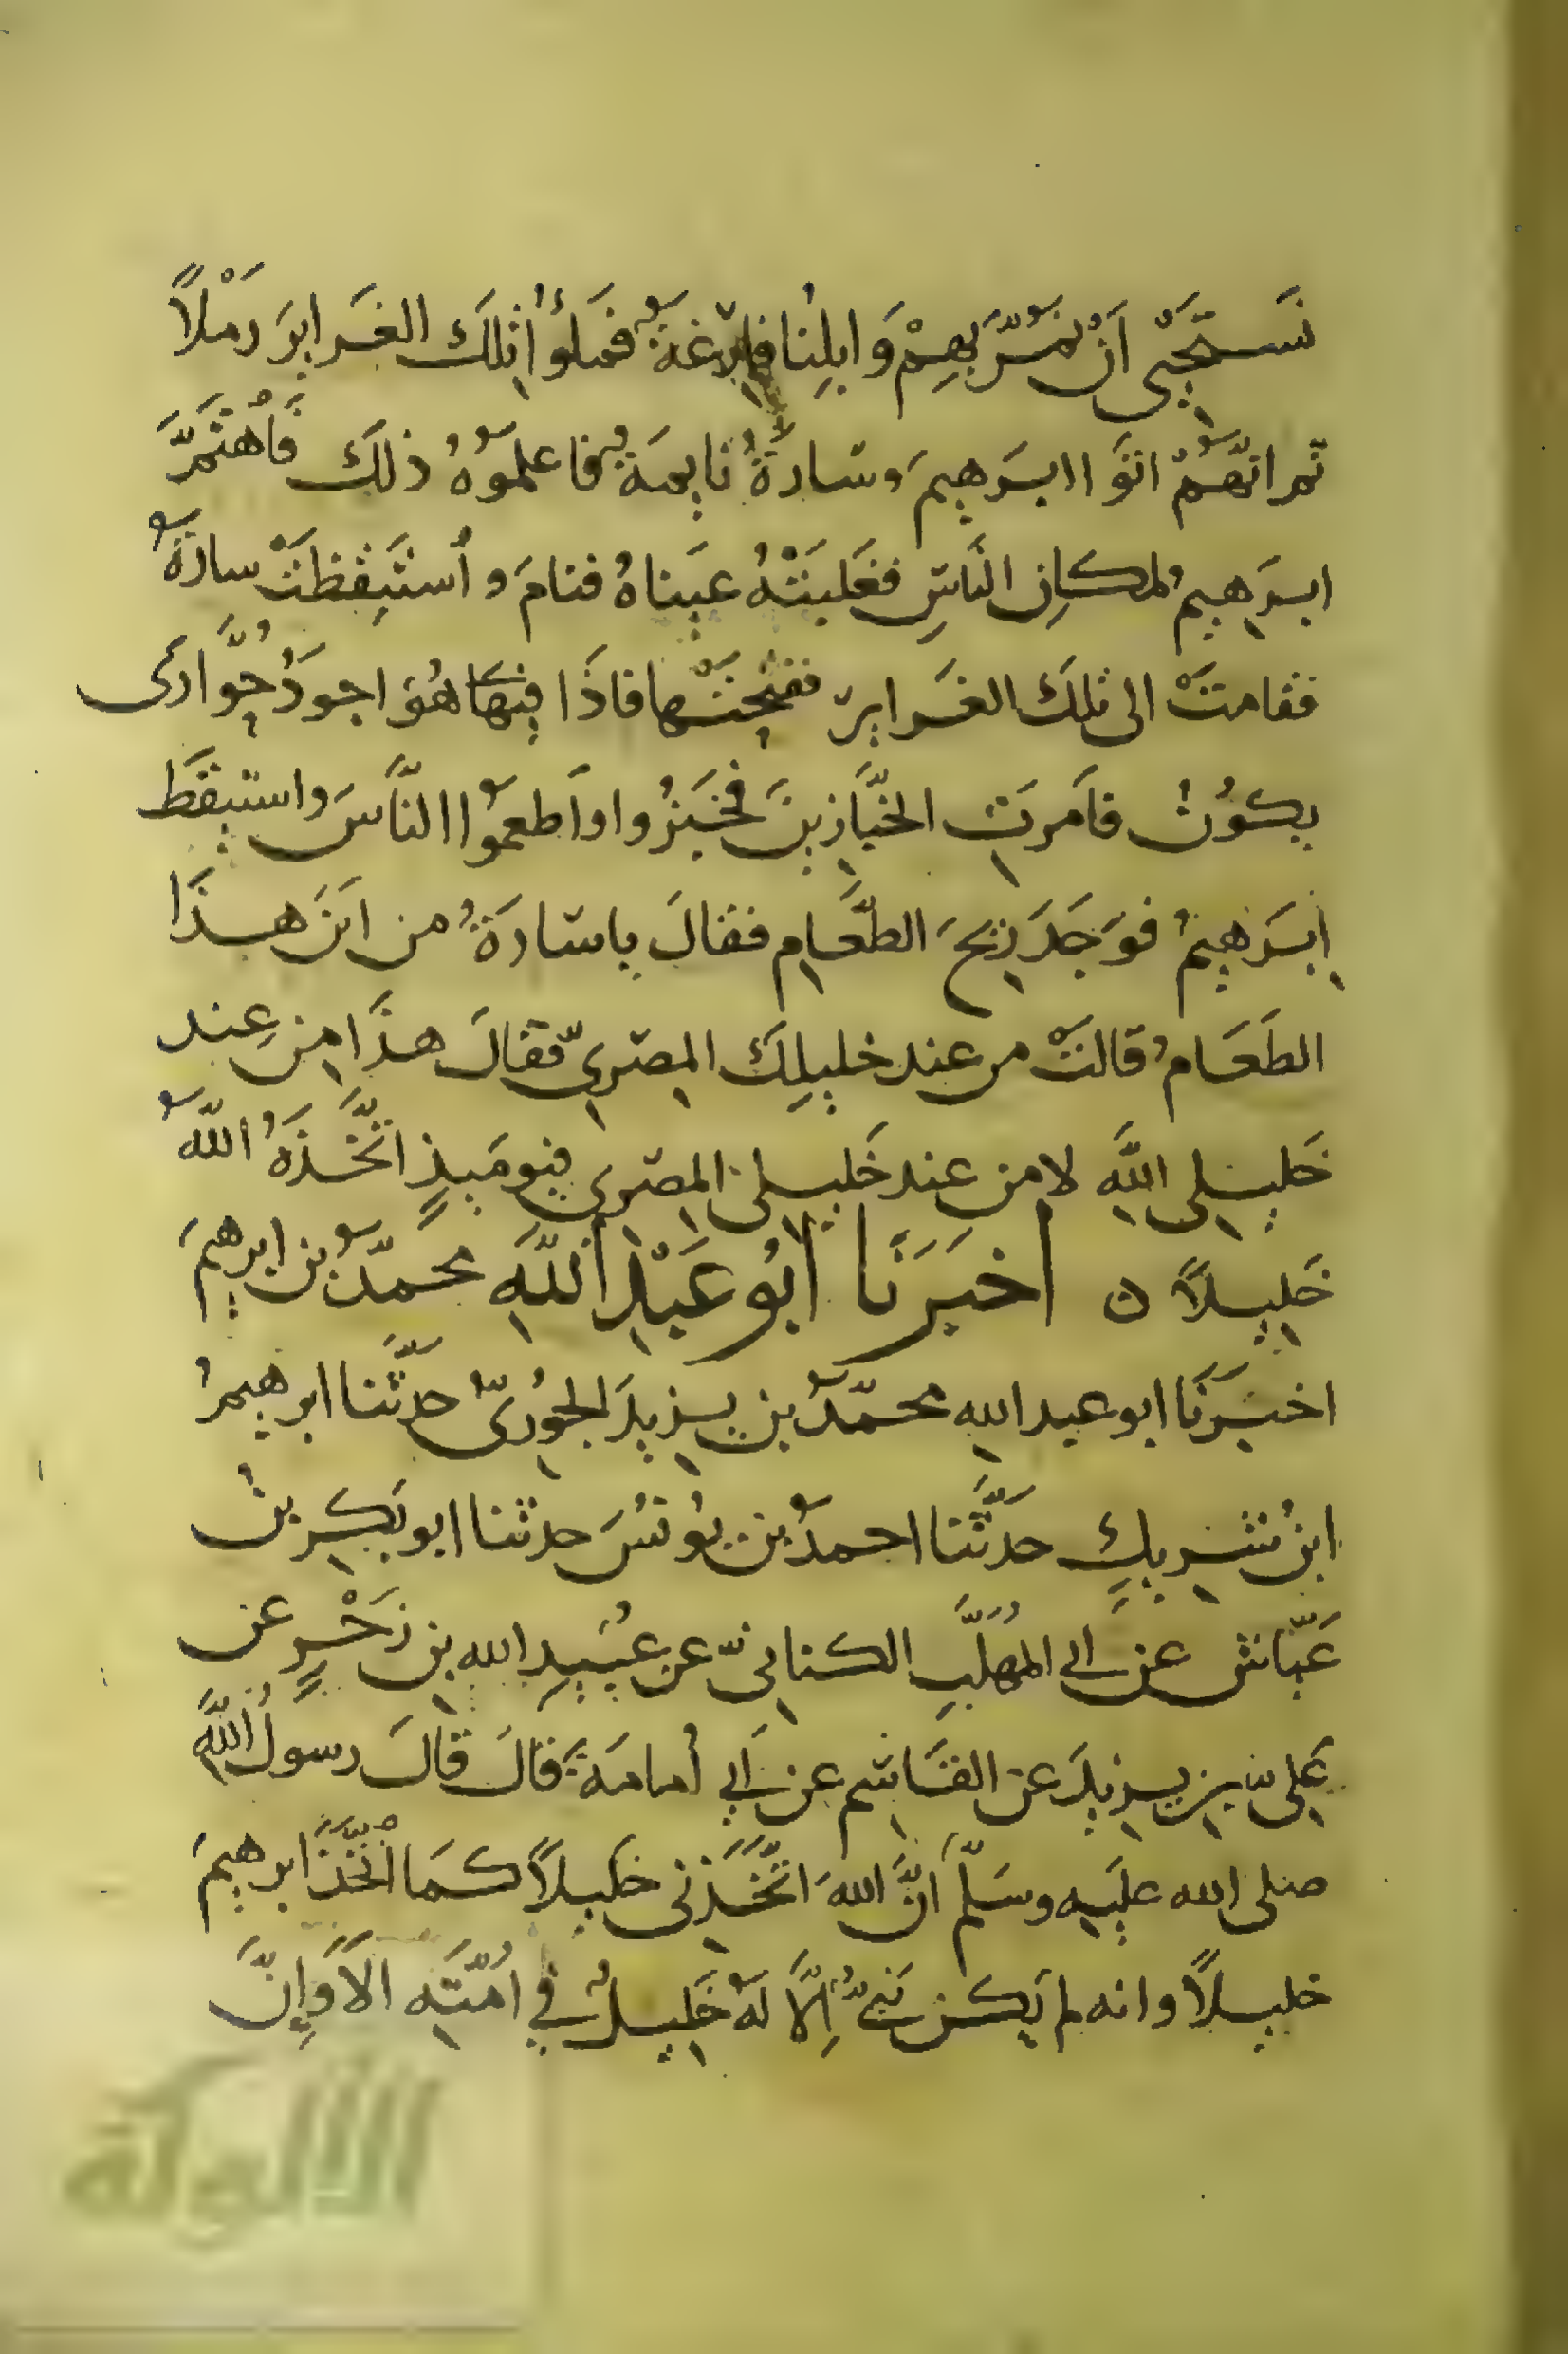 نَستَحْيي اَنْ نَمُرَّ بهِمْ وَابلِنا فارِغةٌ فملوُا تلكَ الغَرايرَ رَمْلاً
ثم انّهُمْ اتَوا ابرَهِيمَ وسَارَةُ نايمةٌ فاعلموُهُ ذلكَ فَاهْتَمَّ
ابرَهِيمُ لمكانِ النَّاسِ فغَلبَتْهُ عيناهُ فنامَ واُستَيقظَتْ سارَةُ
فقامتْ الى تلكَ الغَرايرِ ففتحتْها فاذَا فِيهَا هُو اجودُ حُوَّارَى
يكوُنُ فاَمرَتِ الخبَّازينَ فخَبَزُوا واَطعموُا النَّاسَ واستيقَظ
إبرَهِيمُ فوَجَدَ رِيحَ الطَّعَامِ فقالَ ياسَارَةُ من اَينَ هذَا
الطَعَامُ قالتْ من عند خليلِكَ المِصرِيّ فقالَ هذَا مِن عِند
خَليلِي اللَّهِ لا من عِند خَليلي المِصرِي فيومَيذٍ اتَّخَذَهُ اللّهُ
خَلِيلاً ٥ اخبَرَنَا ابُو عَبْدِ اللَّهِ محمّدُ بن ابرهِيمَ
اخبَرَنَا ابو عبد اللهِ محمّدُ بن يزيدَ الجُورِيّ حدثَّنا ابرهِيمُ
ابنُ شَرِيكٍ حدثَّنا احمدُ بن يوُنُسَ حدثنا ابو بَكرِ بنُ
عَيّاش عن ابي المُهَلَّبِ الكنانِيّ عن عُبَيدِ الله بنِ زَحْرٍ عن
عَلِيّ بن يزيدَ عن القَاسِم عن اَبي اُمامَةَ قالَ قالَ رسولُ اللَّهِ
صلى الله عليه وسَلّم انَّ اللهَ اتَّخَذَني خَليلاً كمَا اتَّخَذَ ابرهِيمَ
خليلاً وانه لم يَكن نَبيٌّ إلَّا لهُ خَلِيلٌ في امَّتِه الَا وَإنَّ
الألوكة